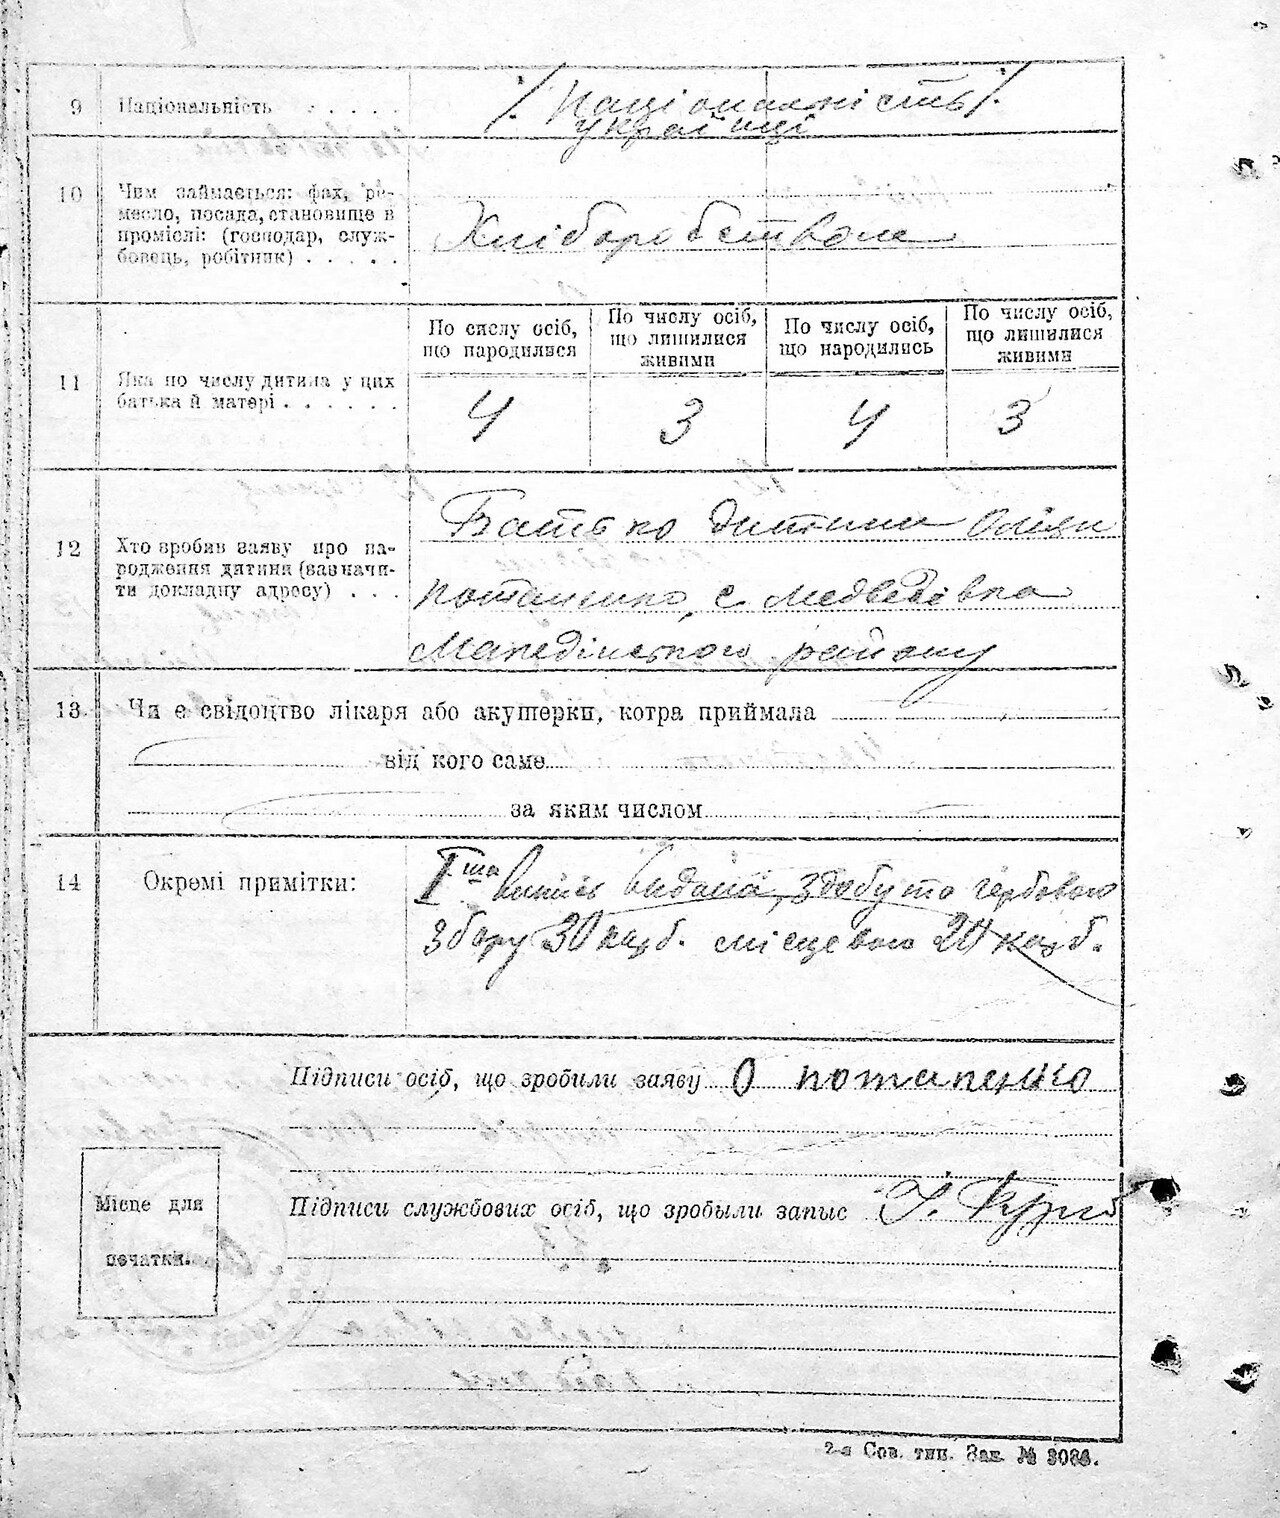 9 Національність . . . . . ./ Національність /.
українці
10 Чим займається: фах, ре-
месло, посада, становище в
проміслі: (господар, служ-
бовець, робітник) . . . . .
Хліборобством
По числу осіб, що народилися
По числу осіб, що лишилися живими
По числу осіб, що народились
По числу осіб, що лишилися живими
11 Яка по числу дитина у цих
батька й матері . . . . . .
4 3 4 3
12 Хто зробив заяву про на-
родження дитини (зазначи-
ти докладну адресу) . . .
Батько дитини
Потапенко, с. Медведівка
району
13. Чи є свідоцтво лікаря або акушерки, котра приймала
від кого саме
за яким числом
14 Окремі примітки:
І ша видана, здобуто гербового
збору 30 карб. місцевого 20 карб.
Підписи осіб, що зробили заяву О потапенко
Місце для
печатки.
Підписи службових осіб, що зробыли запыс
2-а Сов. тип. Зак. № 3086.